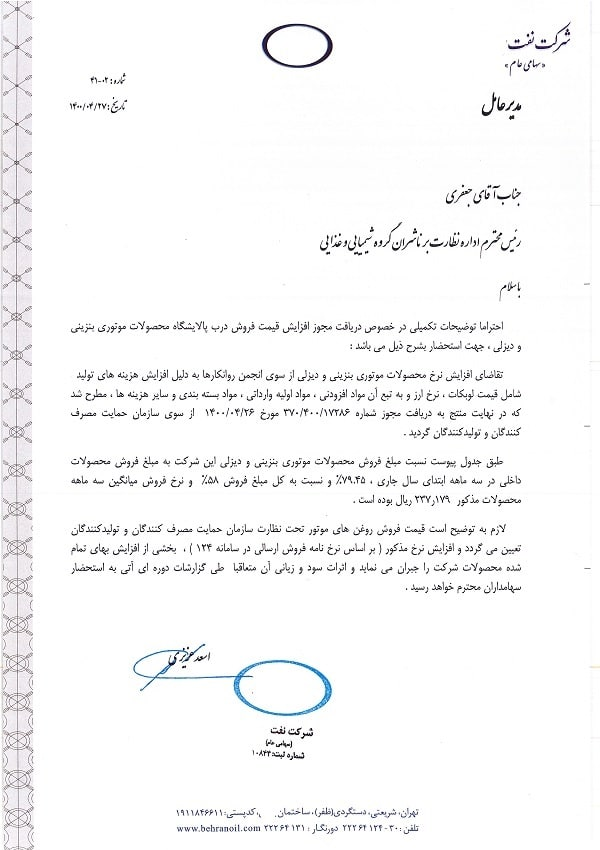 شرکت نفت
«سهامی عام»
شماره: ۰۲-۴۱
تاریخ: ۱۴۰۰/۰۴/۲۷
مدیرعامل
جناب آقای جعفری
رئیس محترم اداره نظارت بر ناشران گروه شیمیایی و غذایی
باسلام
احتراما توضیحات تکمیلی در خصوص دریافت مجوز افزایش قیمت فروش درب پالایشگاه محصولات موتوری بنزینی
و دیزلی ، جهت استحضار بشرح ذیل می باشد :
تقاضای افزایش نرخ محصولات موتوری بنزینی و دیزلی از سوی انجمن روانکارها به دلیل افزایش هزینه های تولید
شامل قیمت لوبکات ، نرخ ارز و به تبع آن مواد افزودنی ، مواد اولیه وارداتی ، مواد بسته بندی و سایر هزینه ها ، مطرح شد
که در نهایت منتج به دریافت مجوز شماره ۳۷۰/۴۰۰/۱۷۲۸۶ مورخ ۱۴۰۰/۰۴/۲۶ از سوی سازمان حمایت مصرف
کنندگان و تولیدکنندگان گردید .
طبق جدول پیوست نسبت مبلغ فروش محصولات موتوری بنزینی و دیزلی این شرکت به مبلغ فروش محصولات
داخلی در سه ماهه ابتدای سال جاری ، ۷۹.۴۵٪ و نسبت به کل مبلغ فروش ۵۸٪ و نرخ فروش میانگین سه ماهه
محصولات مذکور ۲۳۷٫۱۷۹ ریال بوده است .
لازم به توضیح است قیمت فروش روغن های موتور تحت نظارت سازمان حمایت مصرف کنندگان و تولیدکنندگان
تعیین می گردد و افزایش نرخ مذکور ( بر اساس نرخ نامه فروش ارسالی در سامانه ۱۲۴ ) ، بخشی از افزایش بهای تمام
شده محصولات شرکت را جبران می نماید و اثرات سود و زیانی آن متعاقبا طی گزارشات دوره ای آتی به استحضار
سهامداران محترم خواهد رسید .
شرکت نفت
(سهامی عام)
شماره ثبت: ۱۰۸۲۳
تهران، شریعتی، دستگردی(ظفر)، ساختمان ، کدپستی: ۱۹۱۱۸۴۶۶۱۱
تلفن: ۳۰-۲۲۲۶۴۱۲۴ دورنگار: ۲۲۲۶۴۱۳۱ www.behranoil.com